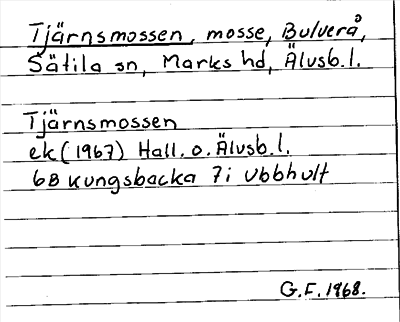 Tjärnsmossen, mosse, Bulverå,
Sätila sn, Marks hd, Älvsb.l.
Tjärnsmossen
ek (1967) Hall. o. Älvsb.l.
6B Kungsbacka 7i Ubbhult
G.F. 1968.